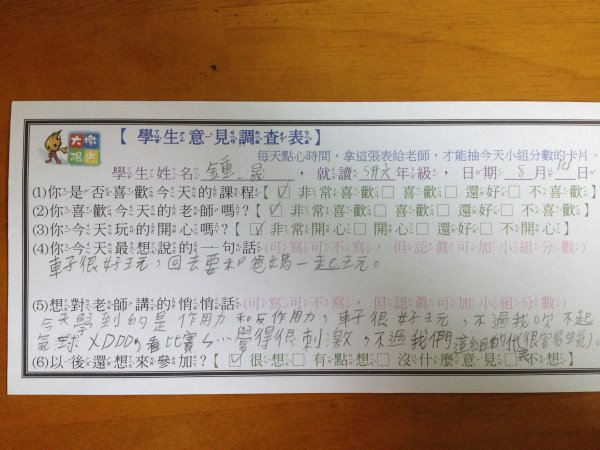 大墩陽光
【學生意見調查表】
每天點心時間，拿這張表給老師，才能抽今天小組分數的卡片。
學生姓名 鍾 晟 ，就讀 升六 年級，日期 8 月 14 日
(1)你是否喜歡今天的課程【☑非常喜歡□喜歡□還好□不喜歡】
(2)你喜歡今天的老師嗎？【☑非常喜歡□喜歡□還好□不喜歡】
(3)你今天玩的開心嗎？【☑非常開心□開心□還好□不開心】
(4)你今天最想說的一句話(可寫可不寫，但認真可加小組分數)
車子很好玩，回去要和爸媽一起玩。
(5)想對老師講的悄悄話(可寫可不寫，但認真可加小組分數)
今天學到的是作用力和反作用力，車子很好玩，不過我吹不起
氣球XDDD，看比賽ㄣ…覺得很刺激，不過我們這組的(很容易失
(6)以後還想來參加？【☑很想□有點想□沒什麼意見□不想】